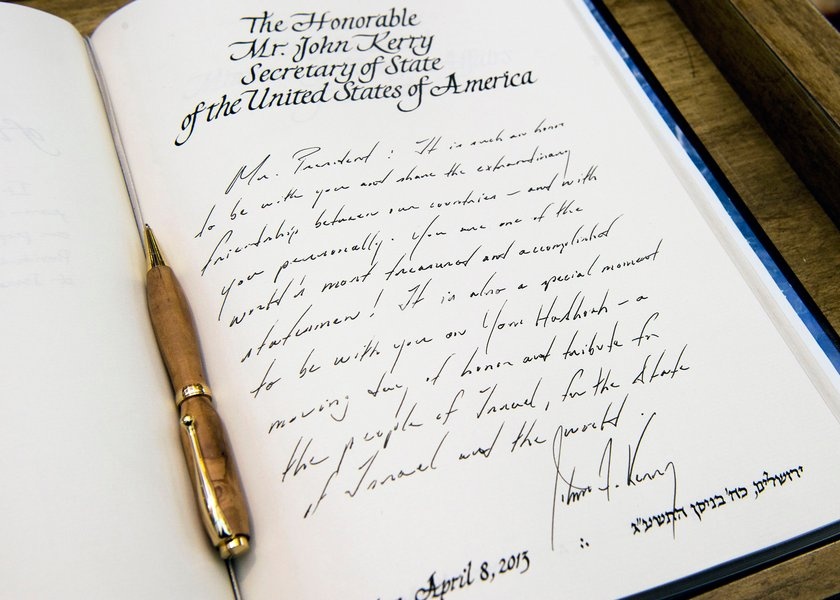 The Honorable
Mr. John Kerry
Secretary of State
of the United States of America
Mr. President: It is such an honor
to be with you and share the extraordinary
friendship between our countries – and with
you personally. You are one of the
world's most treasured and accomplished
statesmen! It is also a special moment
to be with you on Yom HaShoah – a
moving day of honor and tribute for
the people of Israel, for the State
of Israel and the world.
John F. Kerry
ירושלים, כח' בניסן התשע"ג
April 8, 2013